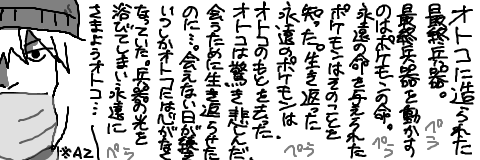 オトコに造られた
最終兵器。
ペラ
最終兵器を動かす
のはポケモンの命。
ペラ
永遠の命を与えられた
ポケモンはそのことを
知った。生き返った
永遠のポケモンは
ペラ
オトコのもとを去った。
オトコは驚き悲しんだ。
会うために生き返らせた
のに…。会えない日が続き
いつしかオトコには心がなく
なっていた。兵器の光を
浴びてしまい永遠に
ペラ
さまようオトコ…
※AZ